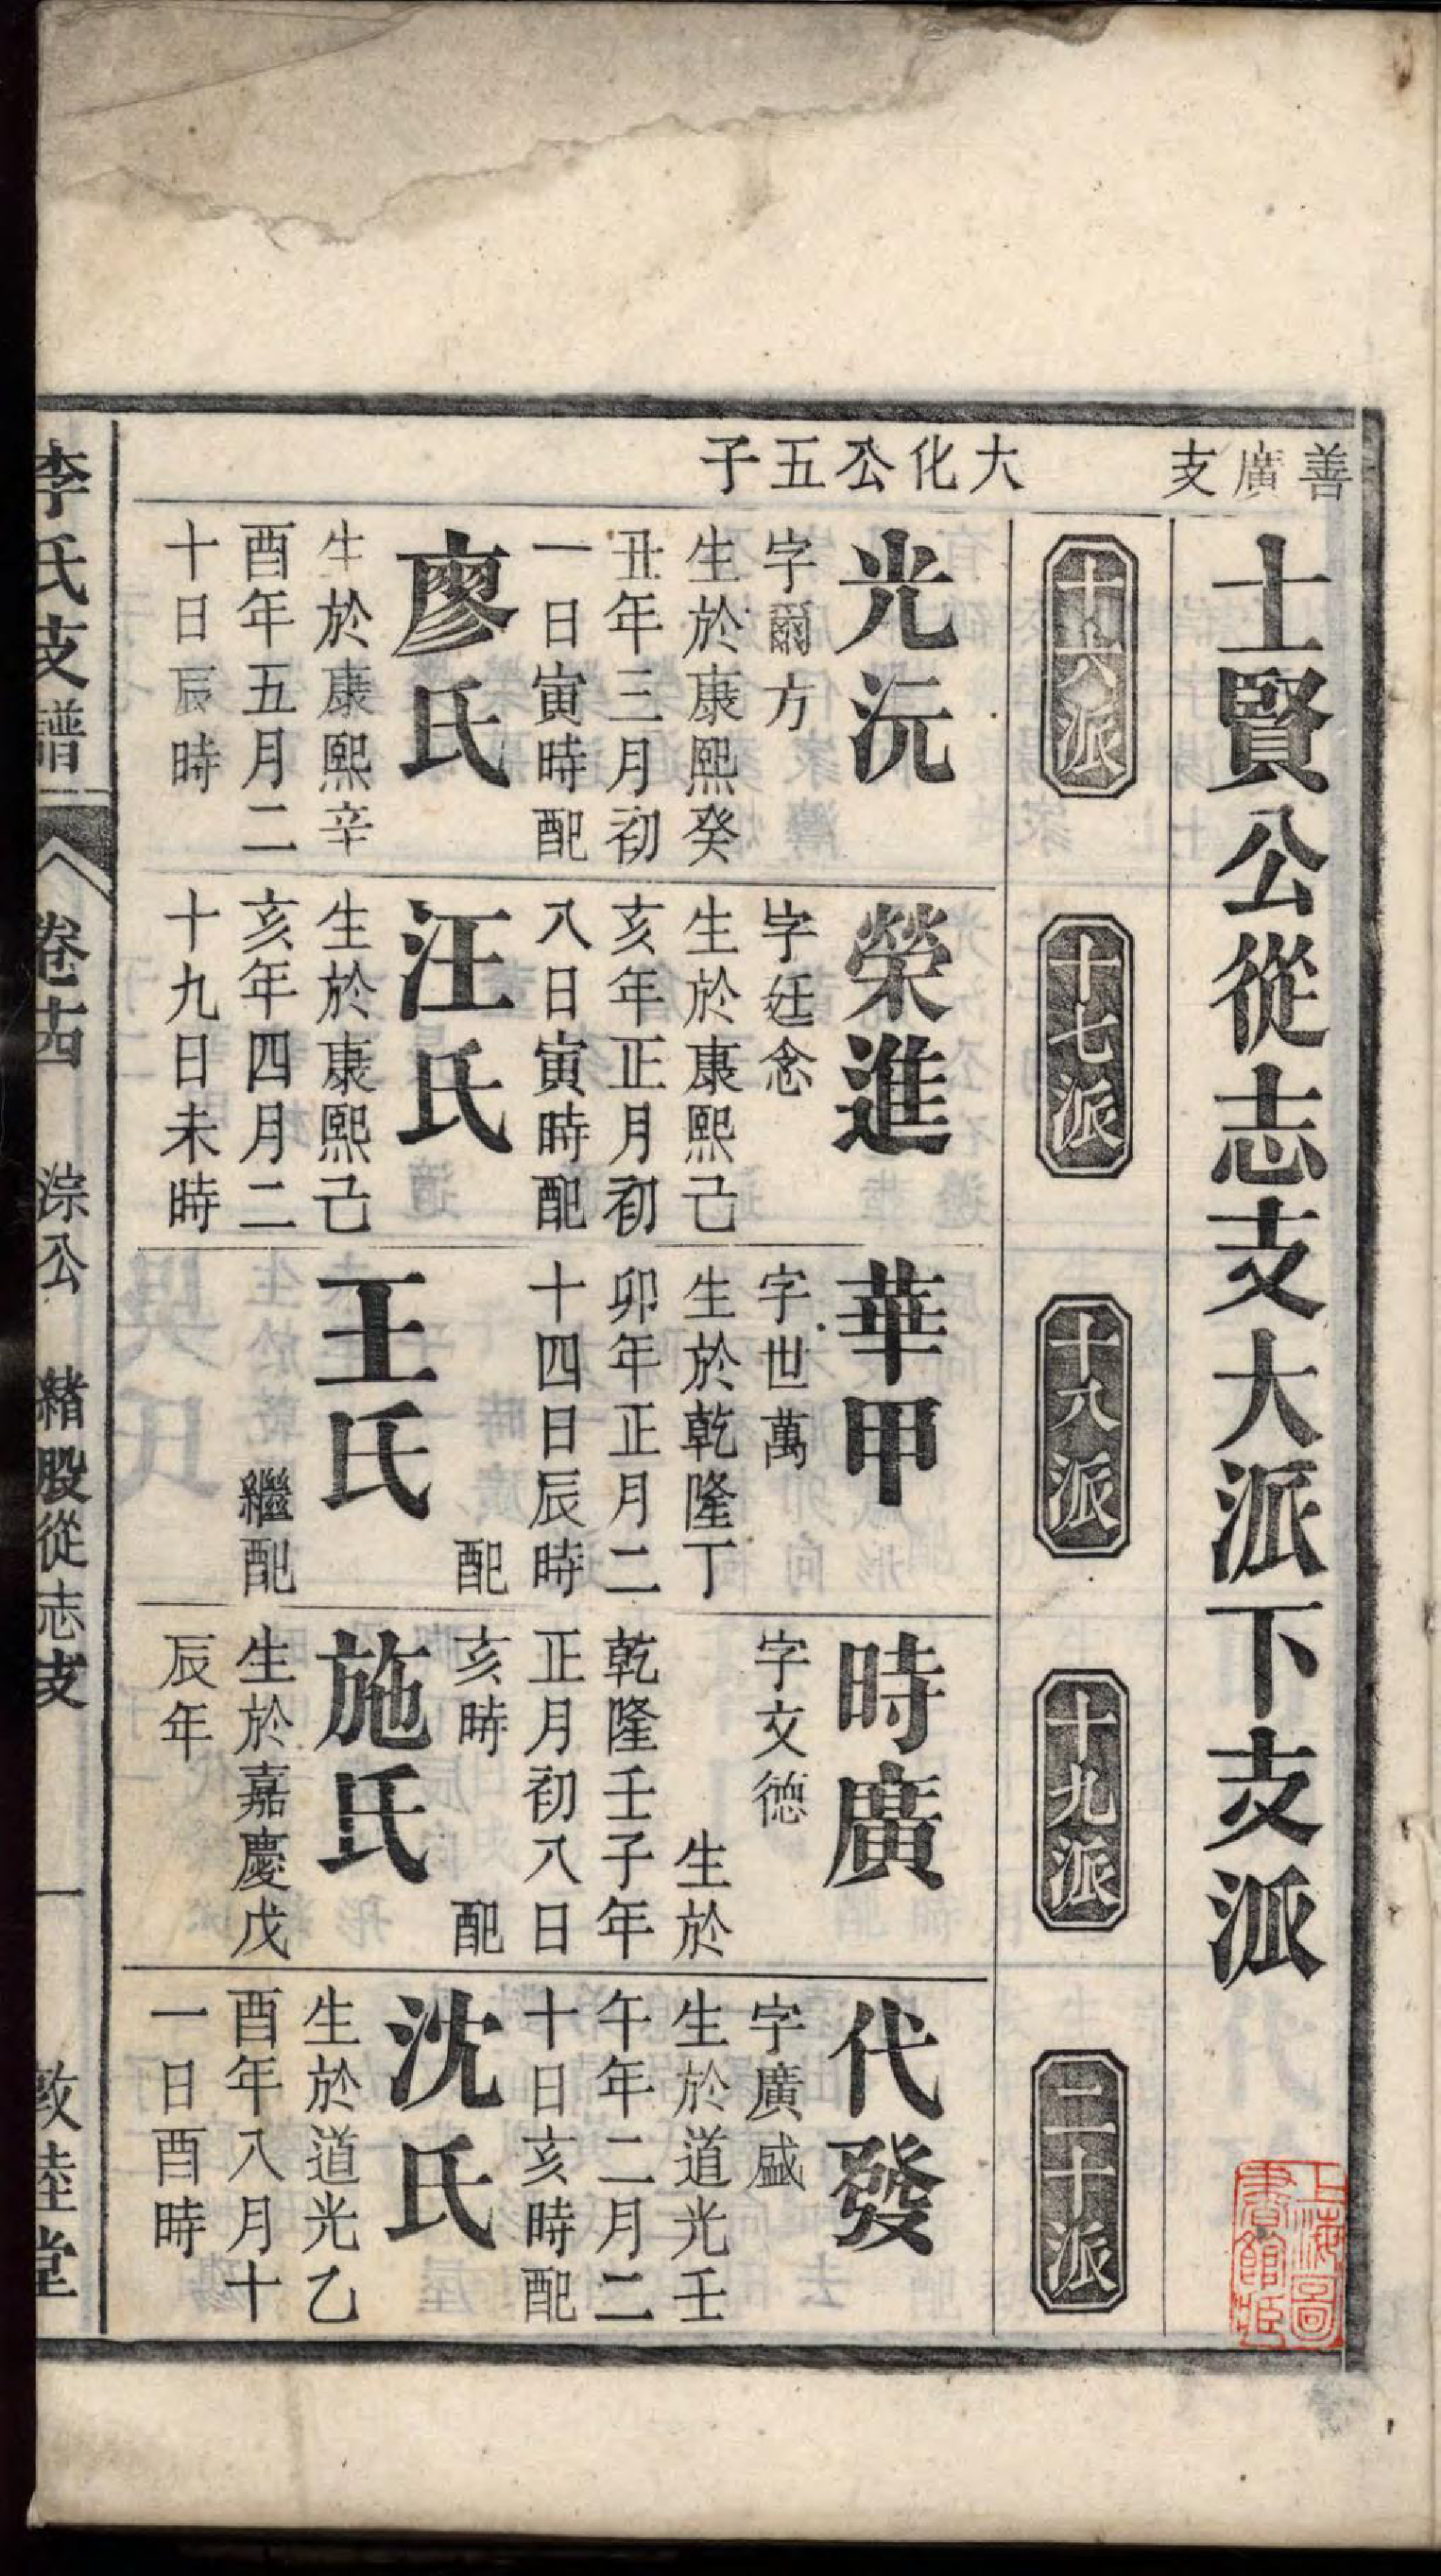 善廣支
士賢公從志支大派下支派
十六派
十七派
十八派
十九派
二十派
大化公五子
光沅
字爾方
生於康熙癸
丑年三月初
一日寅時配
廖氏
生於康熙辛
酉年五月二
十日辰時
榮進
字廷念
生於康熙己
亥年正月初
八日寅時配
汪氏
生於康熙己
亥年四月二
十九日未時
華甲
字世萬
生於乾隆丁
卯年正月二
十四日辰時
配
王氏
繼配
時廣
字文德
生於
乾隆壬子年
正月初八日
亥時
配
施氏
生於嘉慶戊
辰年
代發
字廣盛
生於道光壬
午年二月二
十日亥時配
沈氏
生於道光乙
酉年八月十
一日酉時
李氏支譜
卷廿
淙公
緒股從志支
一
敦睦堂
上海圖
書館藏